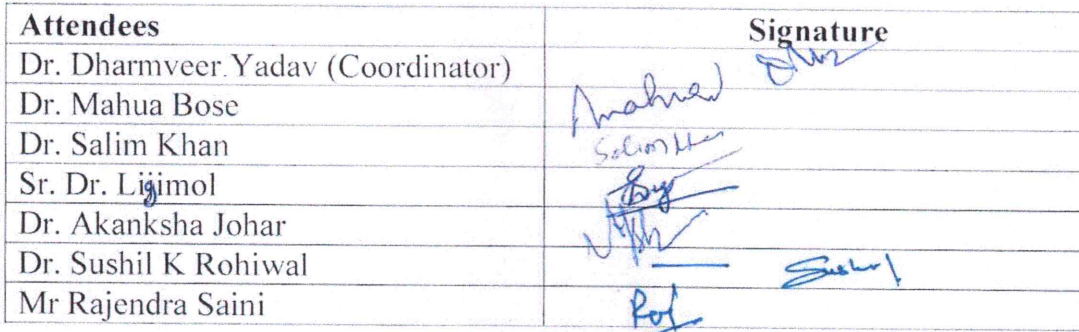 Attendees Signature
Dr. Dharmveer.Yadav (Coordinator)
Dr. Mahua Bose Mahua
Dr. Salim Khan Salim
Sr. Dr. Ligimol
Dr. Akanksha Johar
Dr. Sushil K Rohiwal Sushil
Mr Rajendra Saini Raj